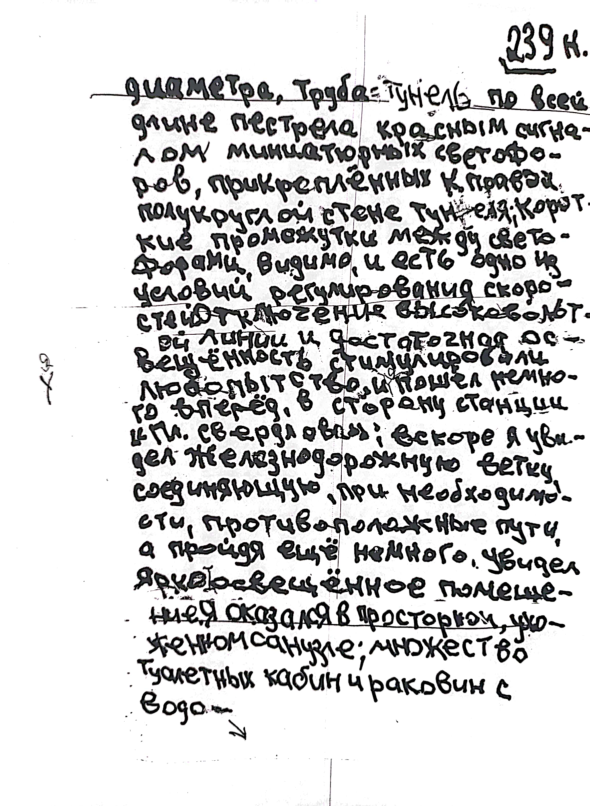 239 н.
диаметра, труба=тунель по всей
длине пестрела красным сигна-
лом миниатюрных светофо-
ров, прикреплённых к правой
полукруглой стене тунеля; корот-
кие промежутки между свето-
форами, видимо, и есть одно из
условий регулирования скоро-
стей Отключение высоковольт-
ой линии и достаточная ос-
вещённость стимулировали
любопытство, и пошёл немно-
го вперёд, в сторону станции
«Пл. свердлова»; вскоре я уви-
дел железнодорожную ветку,
соединяющую, при необходимо-
сти, противоположные пути,
а пройдя ещё немного, увидел
ярко освещённое помеще-
ние. Я оказался в просторном, ухо-
женном санузле; множество
туалетных кабин и раковин с
водо-